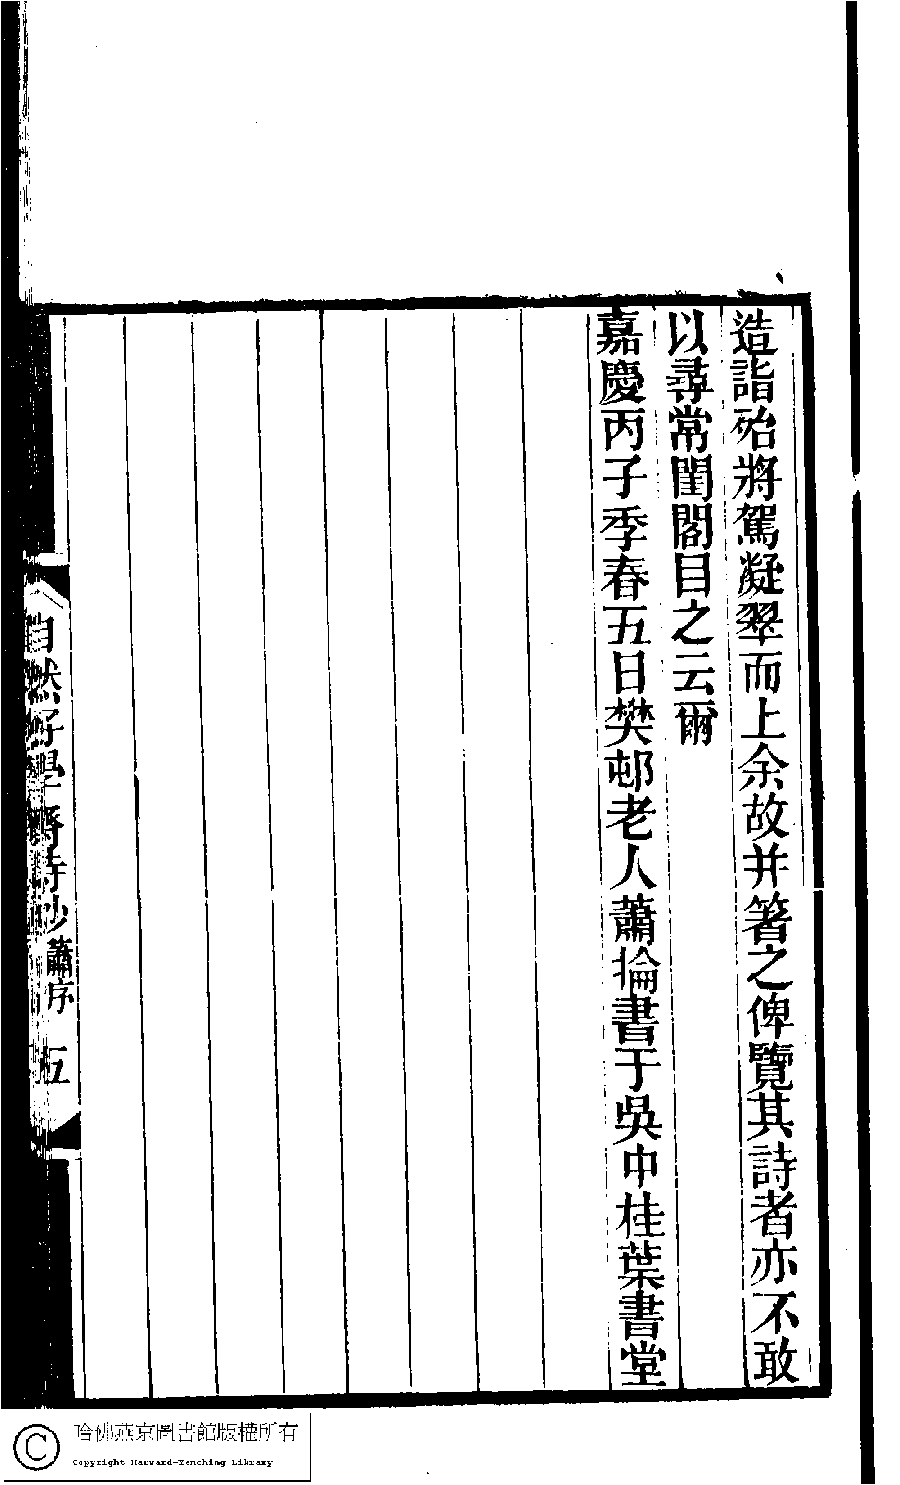 造詣殆將駕凝翠而上余故并箸之俾覽其詩者亦不敢
以尋常閨閣目之云爾
嘉慶丙子季春五日樊邨老人蕭掄書于吳中桂葉書堂
自然好學齋詩鈔 蕭序 五
哈佛燕京圖書館版權所有
Copyright Harvard-Yenching Library